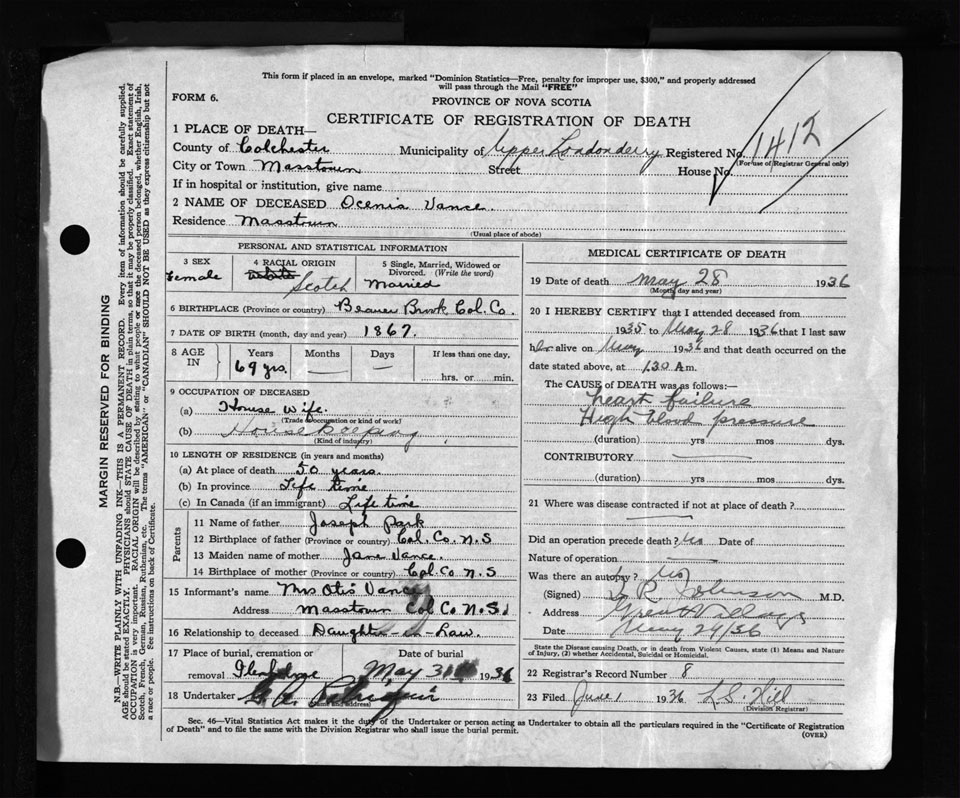 This form if placed in an envelope, marked "Dominion Statistics—Free, penalty for improper use, $300," and properly addressed
will pass through the Mail "FREE"
FORM 6.
PROVINCE OF NOVA SCOTIA
CERTIFICATE OF REGISTRATION OF DEATH
1412
1 PLACE OF DEATH—
County of Colchester Municipality of Upper Londonderry Registered No.
(For use of Registrar General only)
City or Town Masstown Street House No.
If in hospital or institution, give name
2 NAME OF DECEASED Ocenia Vance.
Residence Masstown
(Usual place of abode)
PERSONAL AND STATISTICAL INFORMATION
3 SEX
Female
4 RACIAL ORIGIN
Scotch
5 Single, Married, Widowed or
Divorced. (Write the word)
Married
6 BIRTHPLACE (Province or country) Beaver Brook Col. Co.
7 DATE OF BIRTH (month, day and year) 1867.
8 AGE
IN
Years
69 yrs.
Months
—
Days
—
If less than one day.
hrs. or min.
9 OCCUPATION OF DECEASED
(a) House Wife.
(Trade occupation or kind of work)
(b) Housekeeping
(Kind of industry)
10 LENGTH OF RESIDENCE (in years and months)
(a) At place of death 50 years.
(b) In province Life time
(c) In Canada (if an immigrant) Life time
Parents
11 Name of father Joseph Park
12 Birthplace of father (Province or country) Col. Co. N.S
13 Maiden name of mother Jane Vance.
14 Birthplace of mother (Province or country) Col. Co. N.S
15 Informant's name Mrs Otis Vance
Address Masstown Col Co N.S.
16 Relationship to deceased Daughter-in-Law.
17 Place of burial, cremation or Date of burial
removal May 31 1936
18 Undertaker
(Name and address)
MEDICAL CERTIFICATE OF DEATH
19 Date of death May 28 1936
(Month, day and year)
20 I HEREBY CERTIFY that I attended deceased from
1935 to May 28 1936 that I last saw
her alive on May 1936 and that death occurred on the
date stated above, at 1.30 A m.
The CAUSE of DEATH was as follows:
heart failure
High blood pressure
(duration) yrs mos dys.
CONTRIBUTORY —
(duration) yrs mos dys.
21 Where was disease contracted if not at place of death ?
—
Did an operation precede death? no Date of
Nature of operation —
Was there an autopsy? no
(Signed) R Johnson M.D.
Address Great Village
Date May 29/36
State the Disease causing Death, or in death from Violent Causes, state (1) Means and Nature
of Injury, (2) whether Accidental, Suicidal or Homicidal.
22 Registrar's Record Number 8
23 Filed June 1 1936 L.S. Hill
(Division Registrar)
Sec. 46—Vital Statistics Act makes it the duty of the Undertaker or person acting as Undertaker to obtain all the particulars required in the "Certificate of Registration
of Death" and to file the same with the Division Registrar who shall issue the burial permit.
(OVER)
MARGIN RESERVED FOR BINDING
N.B.—WRITE PLAINLY WITH UNFADING INK—THIS IS A PERMANENT RECORD. Every item of information should be carefully supplied.
AGE should be stated EXACTLY. PHYSICIANS should STATE CAUSE OF DEATH in plain terms, so that it may be properly classified. Exact statement of
OCCUPATION is very important. RACIAL ORIGIN will be described by stating to what people or race the deceased person belonged, whether English, Irish,
Scotch, French, German, Russian, Ruthenian, etc. The terms "AMERICAN" or "CANADIAN" SHOULD NOT BE USED as they express citizenship but not
a race or people. See instructions on back of Certificate.